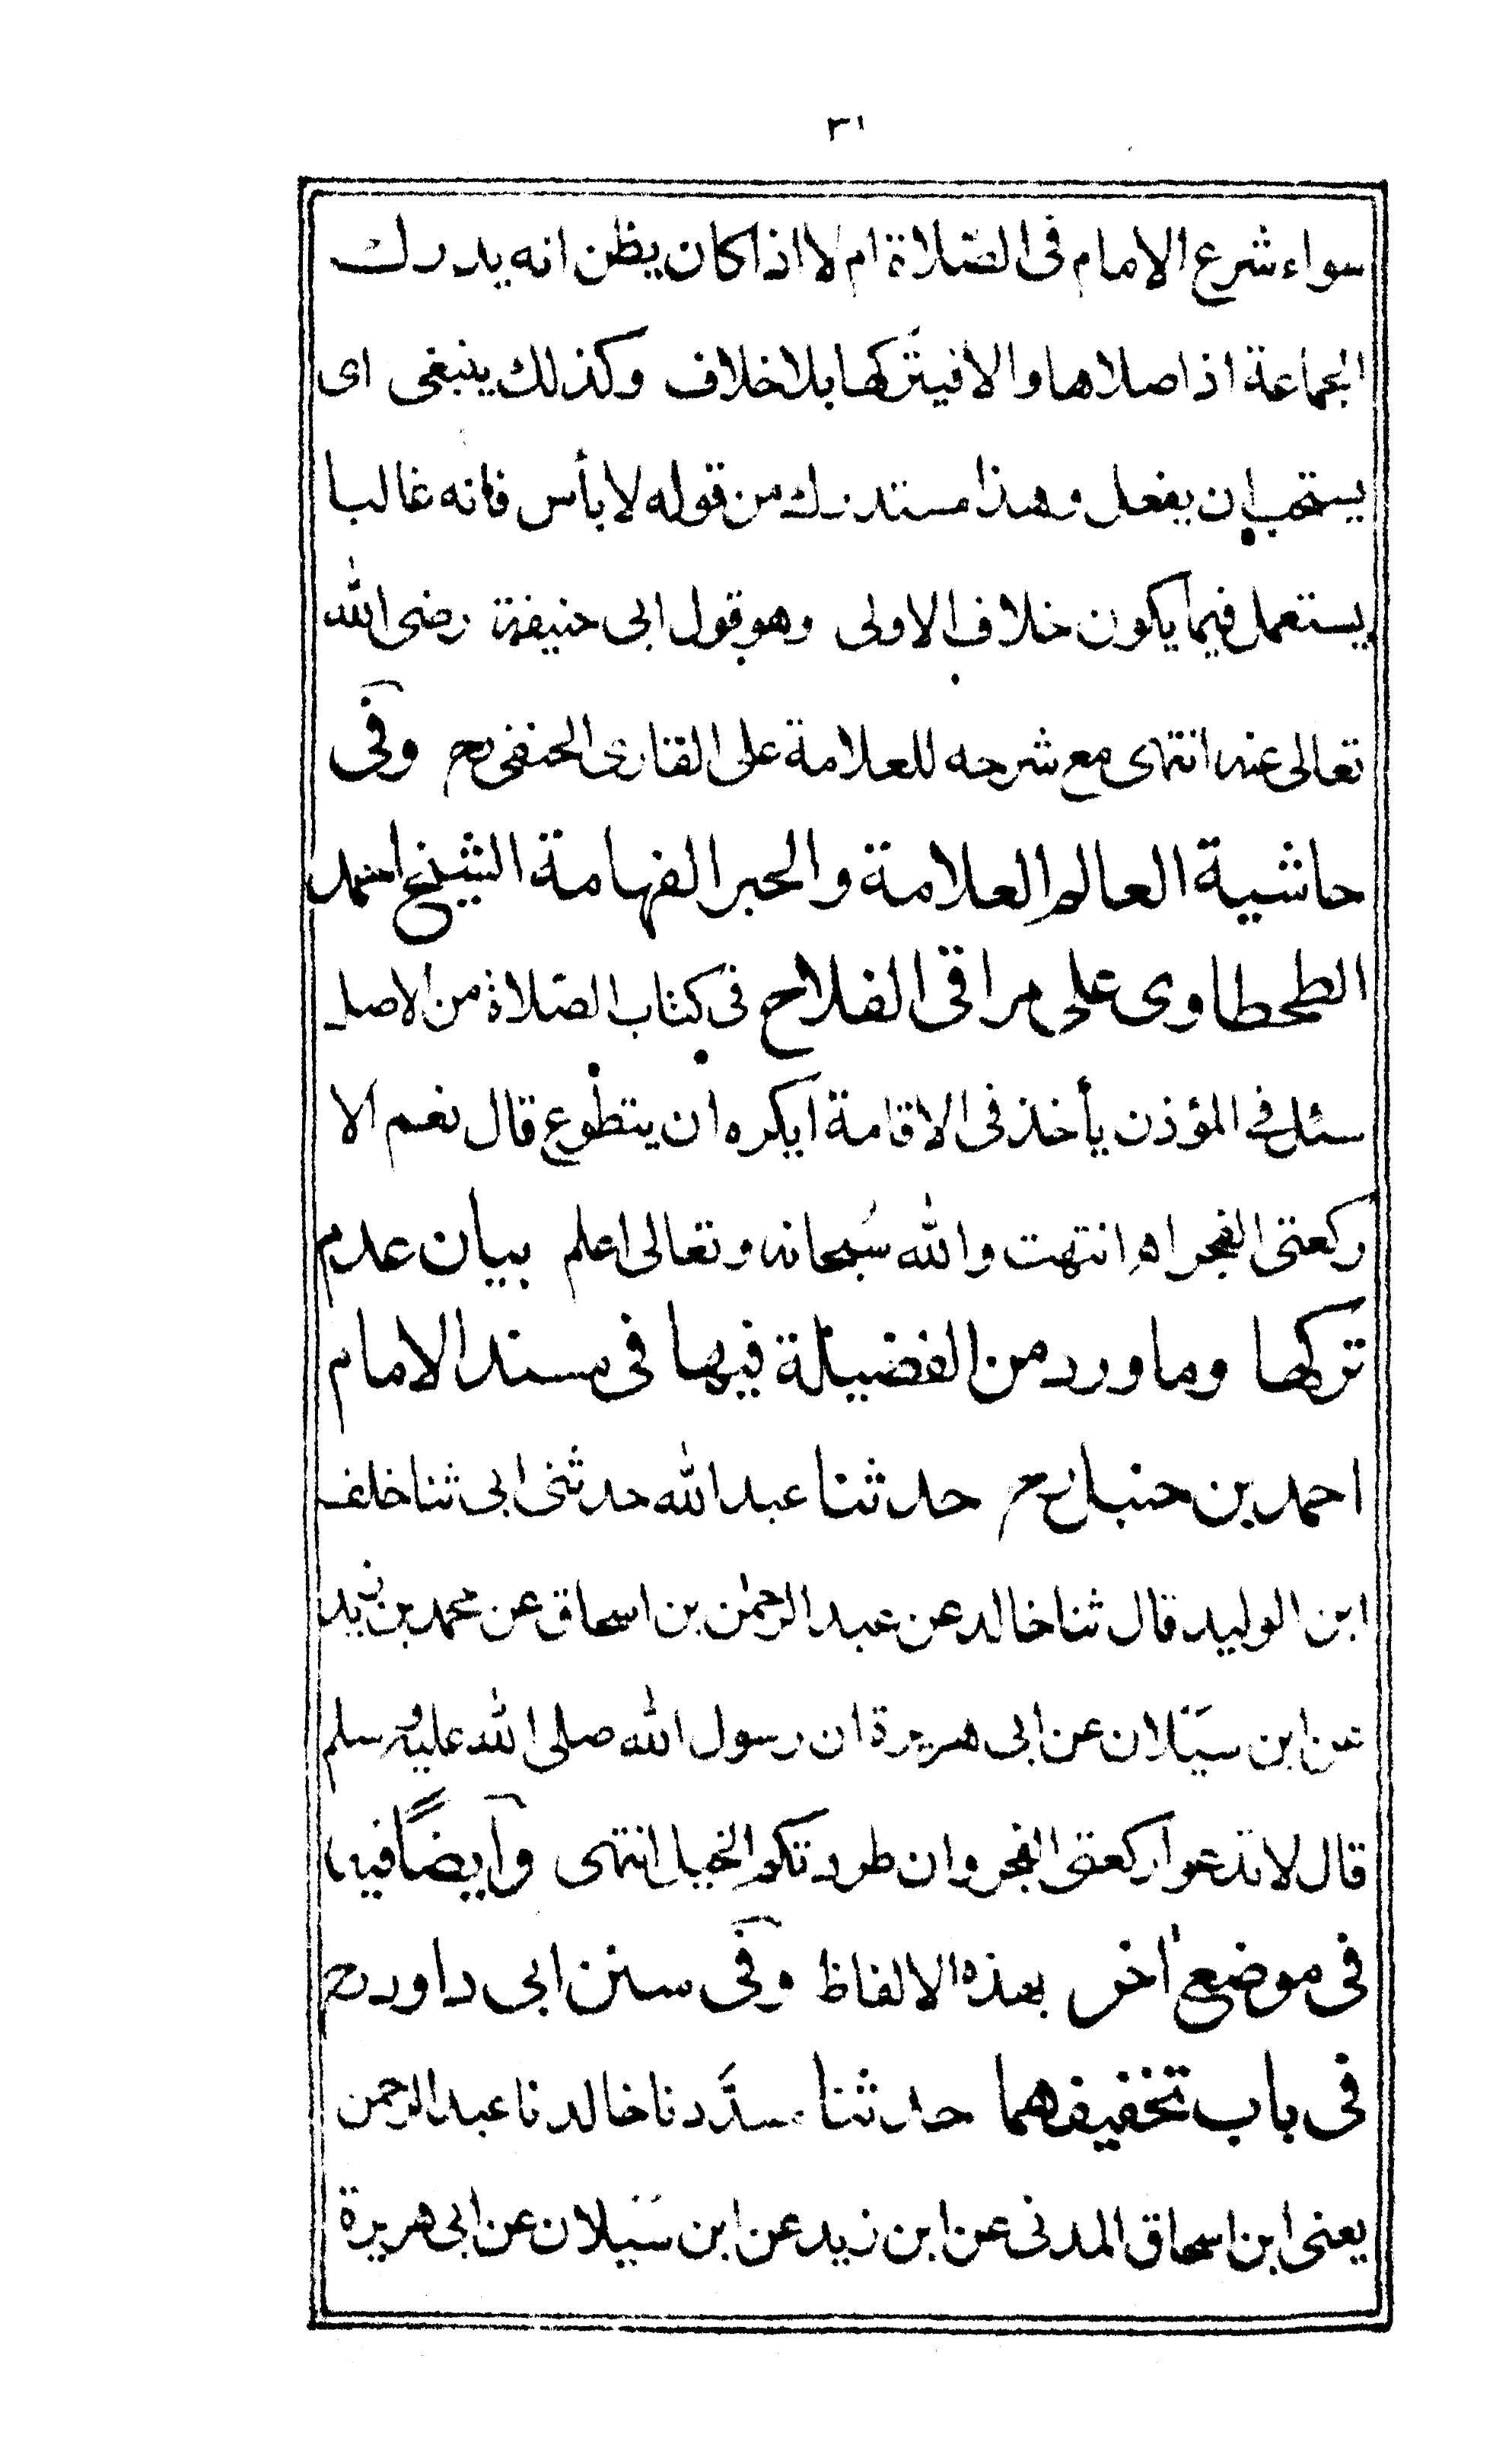 ٣١
سواء شرع الامام فى الصّلاة ام لا اذا كان يظن انه يدرك
الجماعة اذا صلاها والا فيتركها بلا خلاف وكذلك ينبغى اى
يستحب ان يفعل وهذا مستدرك من قوله لا بأس فانه غالبا
يستعمل فيما يكون خلاف الاولى وهو قول ابى حنيفة رضى الله
تعالى عنه انتهى مع شرحه للعلامة على القارى الحنفى رح وفى
حاشية العالم العلامة والحبر الفهامة الشيخ احمد
الطحطاوى على مراقى الفلاح فى كتاب الصّلاة من الاصل
سئل فى المؤذن يأخذ فى الاقامة ايكره ان يتطوع قال نعم الا
ركعتى الفجر اه انتهت والله سُبحانه وتعالى اعلم بيان عدم
تركها وما ورد من الفضيلة فيها فى مسند الامام
احمد بن حنبل رح حدثنا عبد الله حدثنى ابى ثنا خلف
ابن الوليد قال ثنا خالد عن عبد الرحمٰن بن اسحاق عن محمد بن زيد
عن ابن سيَلان عن ابى هريرة ان رسول الله صلى الله عليه وسلم
قال لا تدعوا ركعتى الفجر وان طردتكم الخيل انتهى وايضًا فيه
فى موضع اٰخر بهذه الالفاظ وفى سنن ابى داود رح
فى باب تخفيفهما حدثنا مسدَّد نا خالد نا عبد الرحمن
يعنى ابن اسحاق المدنى عن ابن زيد عن ابن سَيلان عن ابى هريرة